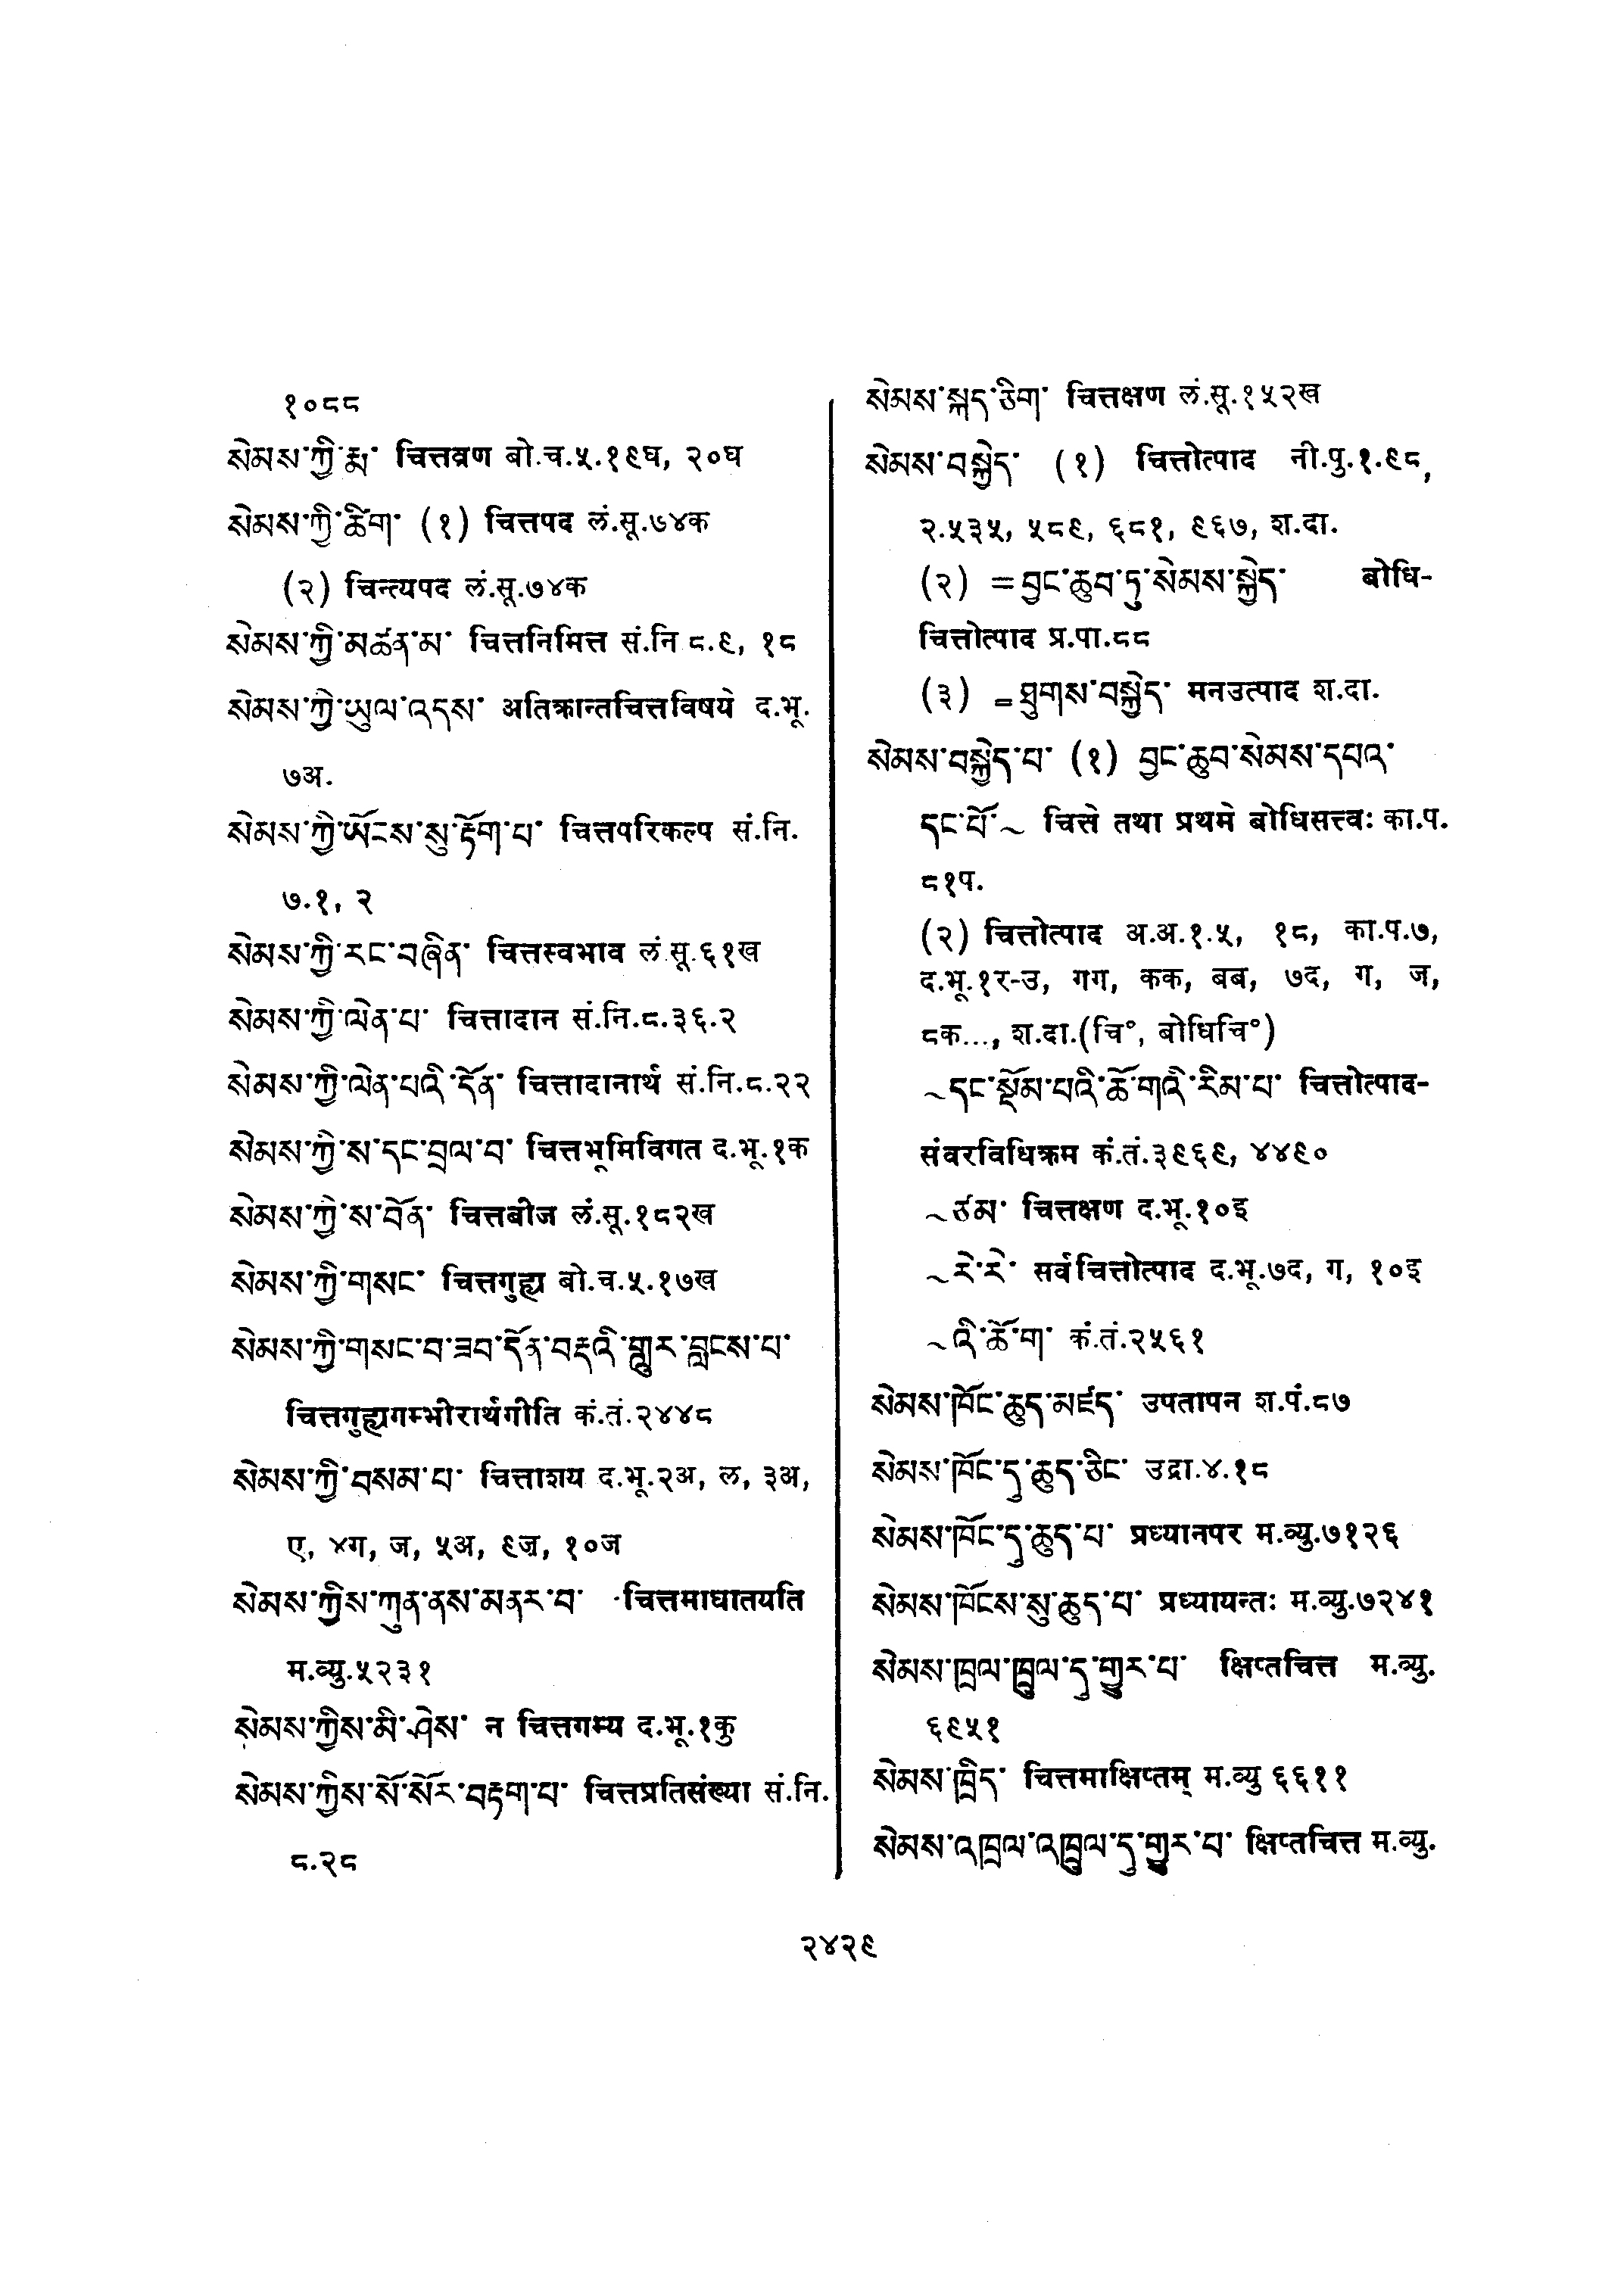 १०८८
སེམས་ཀྱི་རྨ་ चित्तव्रण बो.च.५.१९घ, २०घ
སེམས་ཀྱི་ཚིག་ (१) चित्तपद लं.सू.७४क
(२) चिन्त्यपद लं.सू.७४क
སེམས་ཀྱི་མཚན་མ་ चित्तनिमित्त सं.नि ८.९, १८
སེམས་ཀྱི་ཡུལ་འདས་ अतिक्रान्तचित्तविषये द.भू.
७अ.
སེམས་ཀྱི་ཡོངས་སུ་རྟོག་པ་ चित्तपरिकल्प सं.नि.
७.१, २
སེམས་ཀྱི་རང་བཞིན་ चित्तस्वभाव लं.सू.६१ख
སེམས་ཀྱི་ལེན་པ་ चित्तादान सं.नि.८.३६.२
སེམས་ཀྱི་ལེན་པའི་དོན་ चित्तादानार्थ सं.नि.८.२२
སེམས་ཀྱི་ས་དང་བྲལ་བ་ चित्तभूमिविगत द.भू.१क
སེམས་ཀྱི་ས་བོན་ चित्तबीज लं.सू.१८२ख
སེམས་ཀྱི་གསང་ चित्तगुह्य बो.च.५.१७ख
སེམས་ཀྱི་གསང་བ་ཟབ་དོན་བརྡའི་གླུར་བླངས་པ་
चित्तगुह्यगम्भीरार्थगीति कं.तं.२४४८
སེམས་ཀྱི་བསམ་པ་ चित्ताशय द.भू.२अ, ल, ३अ,
ए, ४ग, ज, ५अ, ९ज, १०ज
སེམས་ཀྱིས་ཀུན་ནས་མནར་བ་ चित्तमाघातयति
म.व्यु.५२३१
སེམས་ཀྱིས་མི་ཤེས་ न चित्तगम्य द.भू.१कु
སེམས་ཀྱིས་སོ་སོར་བརྟག་པ་ चित्तप्रतिसंख्या सं.नि.
८.२८
སེམས་སྐད་ཅིག་ चित्तक्षण लं.सू.१५२ख
སེམས་བསྐྱེད་ (१) चित्तोत्पाद नी.पु.१.९८,
२.५३५, ५८९, ६८१, ९६७, श.दा.
(२) =བྱང་ཆུབ་ཏུ་སེམས་སྐྱེད་ बोधि-
चित्तोत्पाद प्र.पा.८८
(३) =ཐུགས་བསྐྱེད་ मनउत्पाद श.दा.
སེམས་བསྐྱེད་པ་ (१) བྱང་ཆུབ་སེམས་དཔའ་
དང་པོ་~ चित्ते तथा प्रथमे बोधिसत्त्वः का.प.
८१प.
(२) चित्तोत्पाद अ.अ.१.५, १८, का.प.७,
द.भू.१र-उ, गग, कक, बब, ७द, ग, ज,
८क..., श.दा.(चि°, बोधिचि°)
~དང་སྡོམ་པའི་ཆོ་གའི་རིམ་པ་ चित्तोत्पाद-
संवरविधिक्रम कं.तं.३९६९, ४४९०
~ཙམ་ चित्तक्षण द.भू.१०इ
~རེ་རེ་ सर्वचित्तोत्पाद द.भू.७द, ग, १०इ
~འི་ཆོ་ག་ कं.तं.२५६१
སེམས་ཁོང་ཆུད་མཛད་ उपतापन श.पं.८७
སེམས་ཁོང་དུ་ཆུད་ཅིང་ उद्रा.४.१८
སེམས་ཁོང་དུ་ཆུད་པ་ प्रध्यानपर म.व्यु.७१२६
སེམས་ཁོངས་སུ་ཆུད་པ་ प्रध्यायन्तः म.व्यु.७२४१
སེམས་ཁྲལ་ཁྲུལ་དུ་གྱུར་པ་ क्षिप्तचित्त म.व्यु.
६९५१
སེམས་ཁྲིད་ चित्तमाक्षिप्तम् म.व्यु ६६११
སེམས་འཁྲལ་འཁྲུལ་དུ་གྱུར་པ་ क्षिप्तचित्त म.व्यु.
२४२९